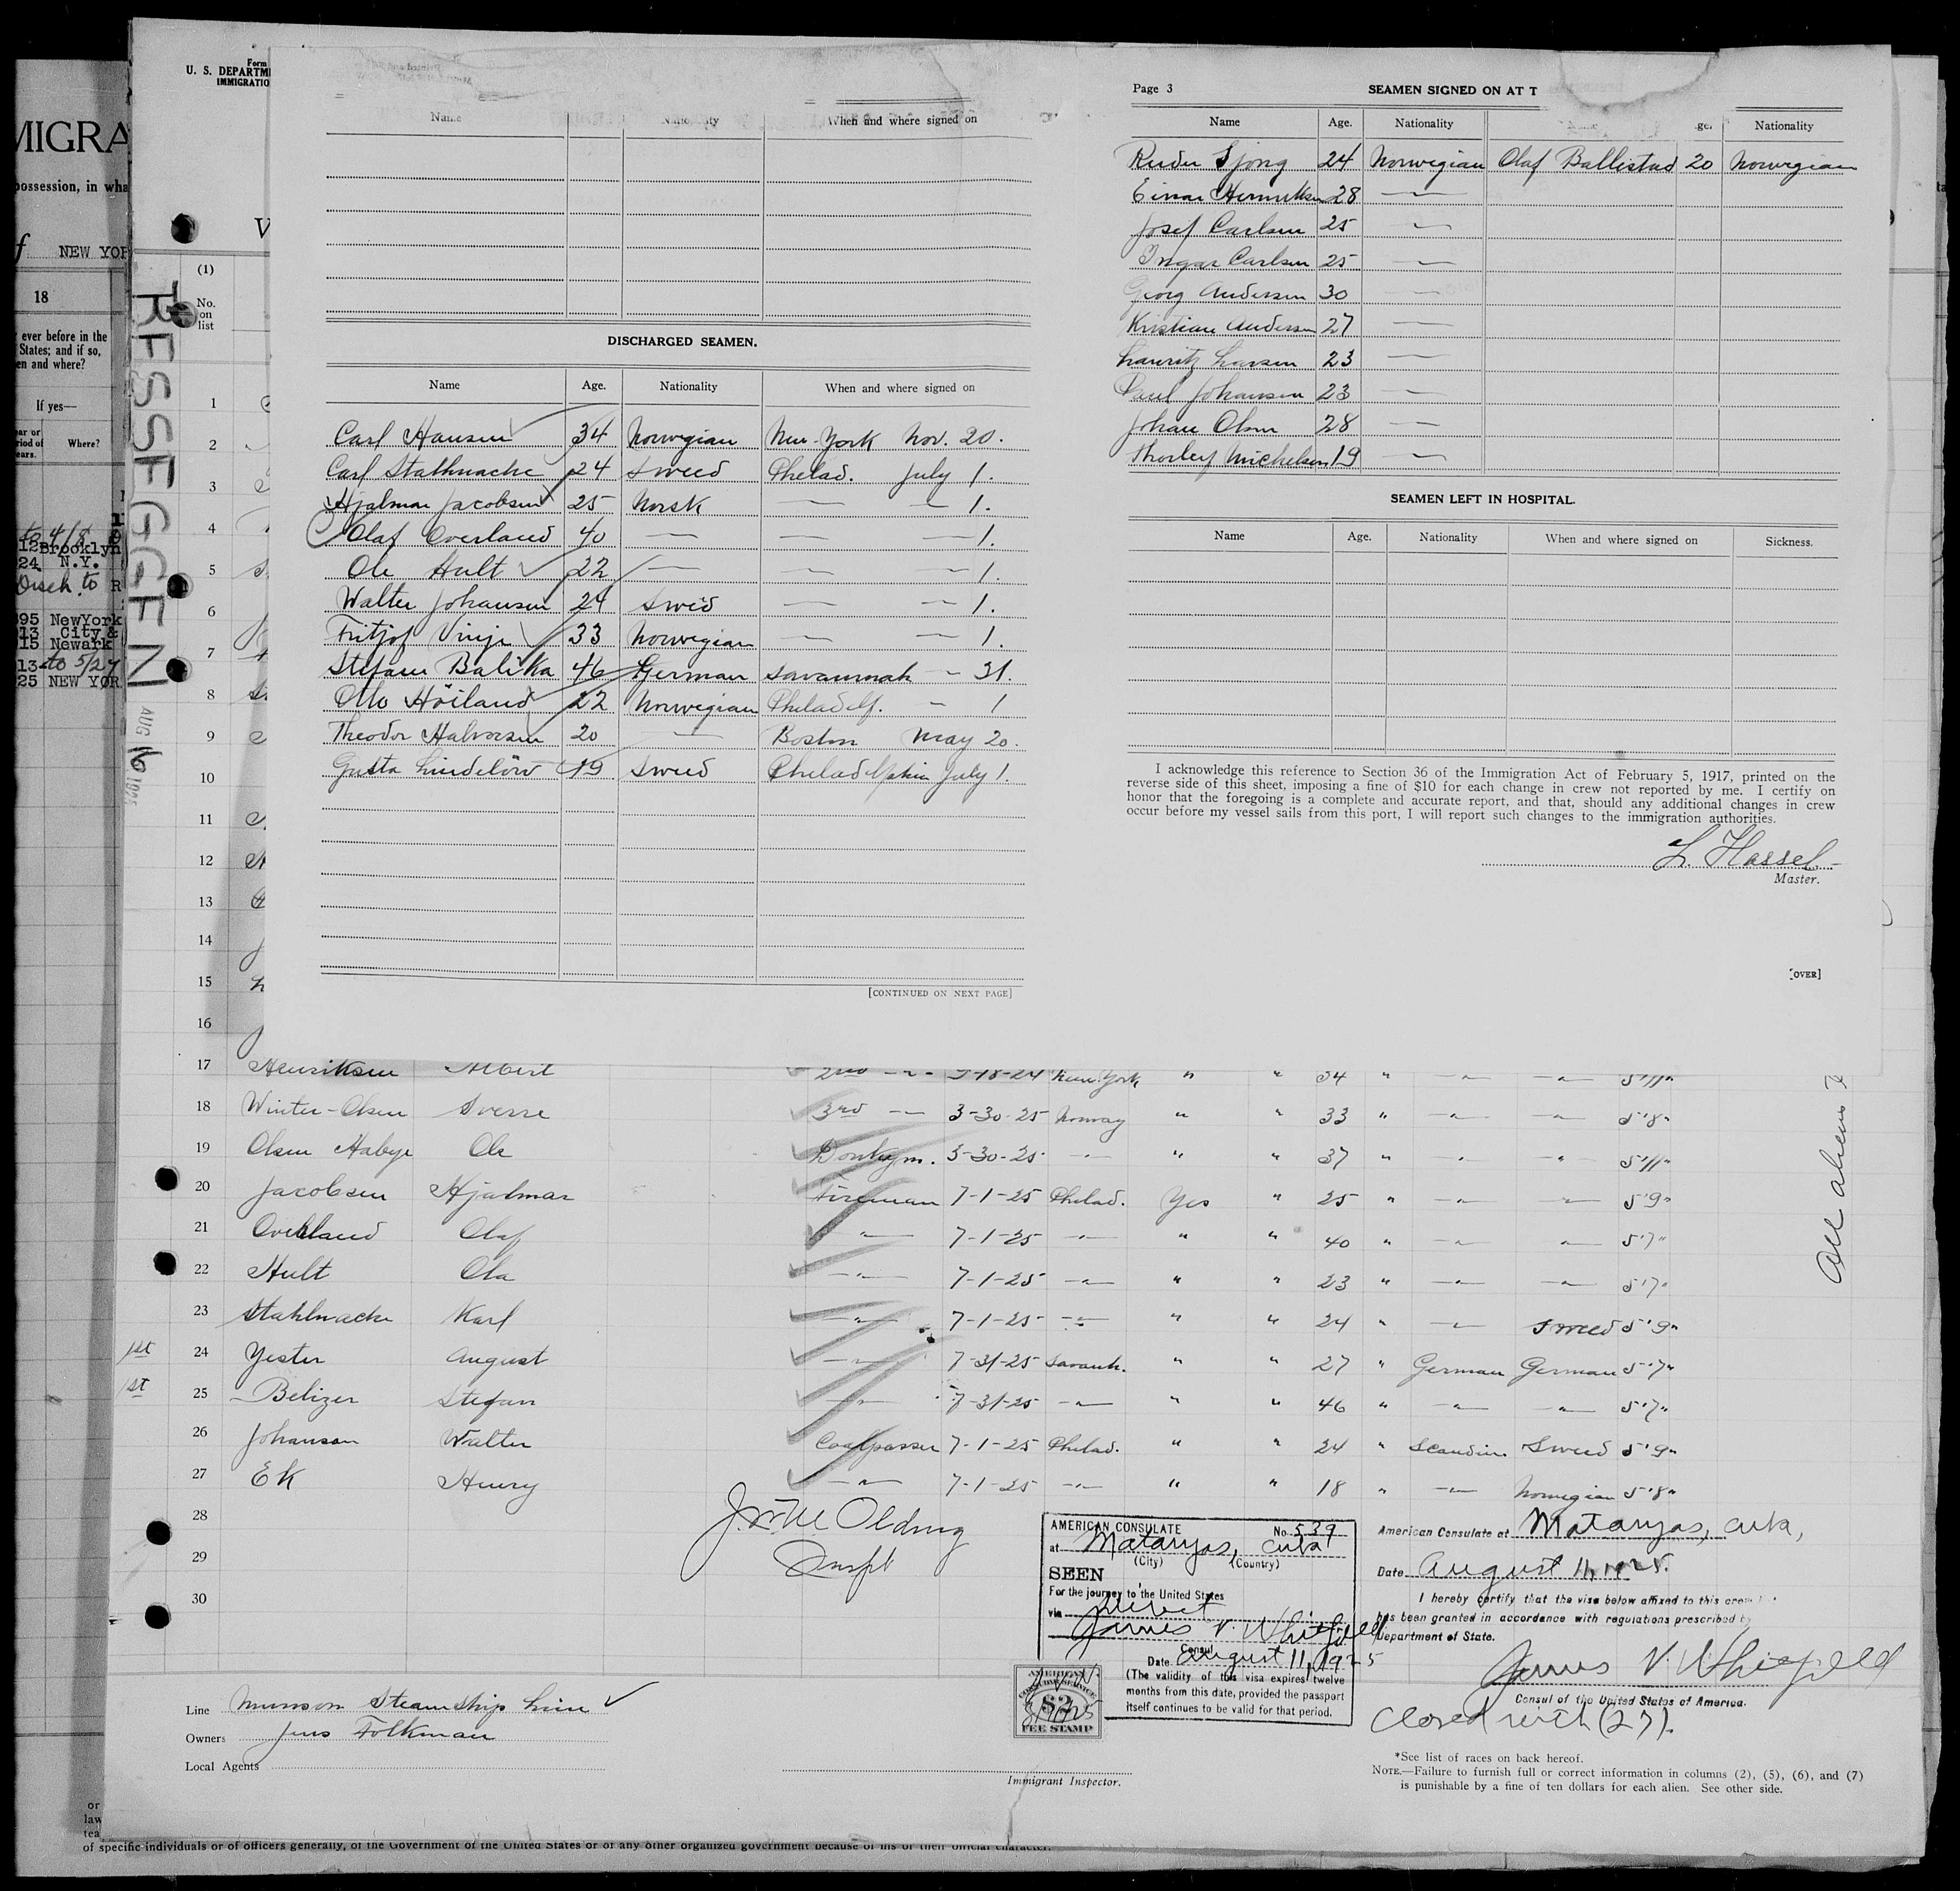 MIGRA
possession, in wha
f NEW YOR
18
ever before in the
States; and if so,
en and where?
If yes—
ear or
riod of
ears.
Where?
to 4/8
12 Brooklyn
24 N.Y.
Disch. to R
95 NewYork
13 City &
15 Newark
13-to 5/27
25 NEW YOR
Form
U. S. DEPARTME
IMMIGRATIO
V
(1)
No.
on
list
RESSEGGEN
AUG 16 1925
1
2
3
4
5
6
7
8
9
10
11
12
13
14
15
16
Name Nationality When and where signed on
DISCHARGED SEAMEN.
Name Age. Nationality When and where signed on
Carl Hansen 34 Norwegian New-York Nov. 20.
Carl Stalhnacke 24 Sweed Phelad. July 1.
Hjalmar Jacobsen 25 Norsk — — 1.
Olaf Overland 40 — — — 1.
Ole Hult 22 — — — 1.
Walter Johansen 24 Swed — — 1.
Fritjof Vinje 33 Norwegian — — 1.
Stefam Balika 46 German Savannah — 31.
Otto Höiland 22 Norwegian Philadelf. — 1
Theodor Halvorsen 20 — Boston May 20.
Gusta Lindelöw 19 Sweed Philadelphia July 1.
[CONTINUED ON NEXT PAGE]
Page 3 SEAMEN SIGNED ON AT T
Name Age. Nationality ge. Nationality
Sjong 24 Norwegian Olaf Ballestad 20 Norwegian
Einar Henriksen 28 —
Josef Carlsen 25 —
Ingar Carlsen 25 —
Georg Andersen 30 —
Kristian Andersen 27 —
Lauritz Larsen 23 —
Paul Johansen 23 —
Johan Olsen 28 —
Thorley Michelsen 19 —
SEAMEN LEFT IN HOSPITAL.
Name Age. Nationality When and where signed on Sickness.
I acknowledge this reference to Section 36 of the Immigration Act of February 5, 1917, printed on the
reverse side of this sheet, imposing a fine of $10 for each change in crew not reported by me. I certify on
honor that the foregoing is a complete and accurate report, and that, should any additional changes in crew
occur before my vessel sails from this port, I will report such changes to the immigration authorities.
L. Hassel
Master.
[OVER]
17 Henriksen Albert 2nd — " — 9-18-24 New York " " 34 " — " — — " — 5'11"
18 Winter-Olsen Sverre 3rd — 3-30-25 Norway " " 33 " — " — — " — 5'8"
19 Olsen Habye Ole Donkeym. 3-30-25 — " — " " 37 " — " — — " — 5'11"
20 Jacobsen Hjalmar Fireman 7-1-25 Philad. Yes " 25 " — " — — " — 5'9"
21 Overland Olaf — " — 7-1-25 — " — " " 40 " — " — — " — 5'7"
22 Hult Ola — " — 7-1-25 — " — " " 23 " — " — — " — 5'7"
23 Stahlnacke Karl — " — 7-1-25 — " — " " 24 " — " — Sweed 5'9"
1st 24 Yester August — " — 7-31-25 Savanh. " " 27 " German German 5'7"
1st 25 Belizer Stefan — " — 7-31-25 — " — " " 46 " — " — — " — 5'7"
26 Johanson Walter Coalpasser 7-1-25 Philad. " " 24 " Scandin. Sweed 5'9"
27 Ek Henry — " — 7-1-25 — " — " " 18 " — " — Norwegian 5'8"
28
29
30
All aliens
Olding
Inspt
AMERICAN CONSULATE No. 539
at Matanzas, Cuba
(City) (Country)
SEEN
For the journey to the United States
via Direct
James V. Whitfield
Consul
Date August 11, 1925
(The validity of this visa expires twelve
months from this date, provided the passport
itself continues to be valid for that period.
AMERICAN
CONSULAR SERVICE
$2
FEE STAMP
American Consulate at Matanzas, Cuba,
Date August 11, 1925.
I hereby certify that the visa below affixed to this crew
has been granted in accordance with regulations prescribed by
Department of State.
James V. Whitfield
Consul of the United States of America.
Closed with (27).
Line Munson Steamship Line
Owners Jens Folkman
Local Agents
Immigrant Inspector.
*See list of races on back hereof.
NOTE.—Failure to furnish full or correct information in columns (2), (5), (6), and (7)
is punishable by a fine of ten dollars for each alien. See other side.
or
law
tea
of specific individuals or of officers generally, of the Government of the United States or of any other organized government because of his or their official character.